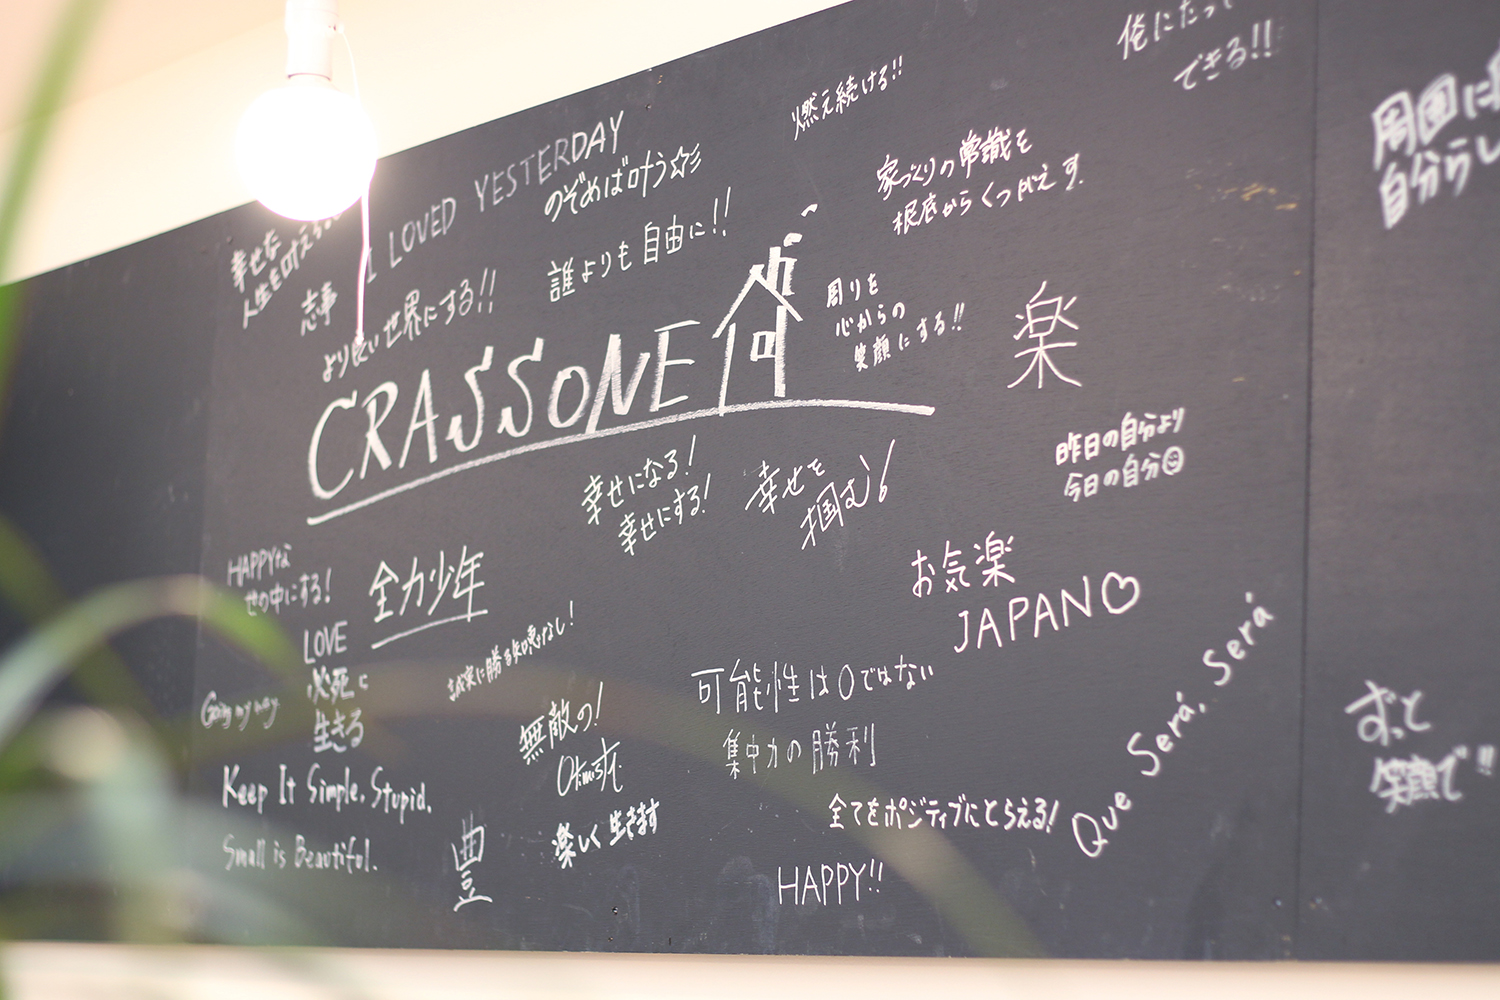 俺にたって
できる!!
燃え続ける!!
I LOVED YESTERDAY
のぞめば叶う☆彡
家づくりの常識を
根底からくつがえす。
周囲に
自分らし
幸せな
人生を叶える
志事
誰よりも自由に!!
より良い世界にする!!
周りを
心からの
笑顔にする!!
楽
CRASSONE
昨日の自分より
今日の自分☺
幸せになる!
幸せにする!
幸せを
掴む!
HAPPYな
世の中にする!
全力少年
お気楽
JAPAN♡
LOVE
必死に
生きる
誠実に勝る知恵なし!
Going my way
可能性は0ではない
集中力の勝利
無敵の!
楽しく生きます
Keep It Simple, Stupid.
Small is Beautiful.
豊
全てをポジティブにとらえる!
HAPPY!!
Que Será, Será
ずっと
笑顔で!!